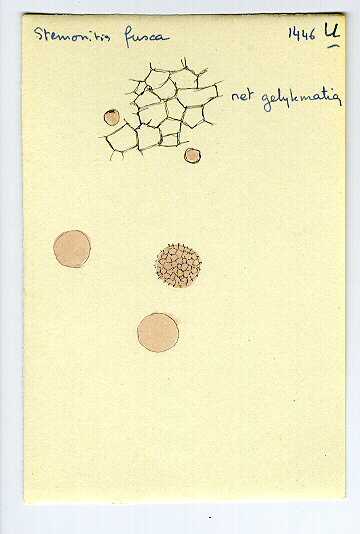 Stemonitis fusca 1446 U
net gelykmatig